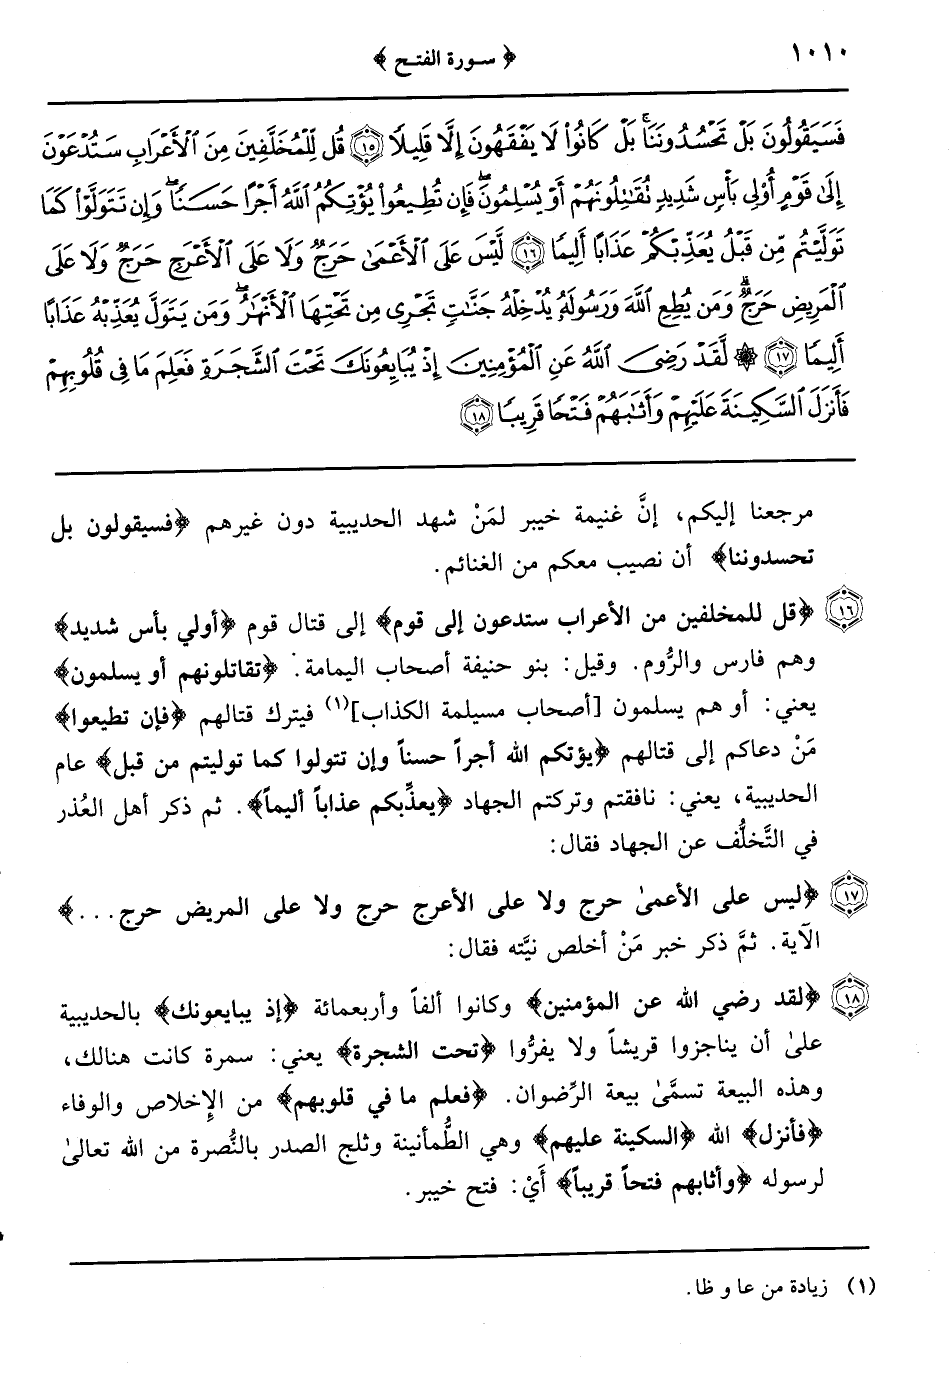 ١٠١٠
﴿ سورة الفتح ﴾
فَسَيَقُولُونَ بَلْ تَحْسُدُونَنَا ۚ بَلْ كَانُوا۟ لَا يَفْقَهُونَ إِلَّا قَلِيلًا ١٥ قُل لِّلْمُخَلَّفِينَ مِنَ ٱلْأَعْرَابِ سَتُدْعَوْنَ
إِلَىٰ قَوْمٍ أُو۟لِى بَأْسٍ شَدِيدٍ تُقَـٰتِلُونَهُمْ أَوْ يُسْلِمُونَ ۖ فَإِن تُطِيعُوا۟ يُؤْتِكُمُ ٱللَّهُ أَجْرًا حَسَنًا ۖ وَإِن تَتَوَلَّوْا۟ كَمَا
تَوَلَّيْتُم مِّن قَبْلُ يُعَذِّبْكُمْ عَذَابًا أَلِيمًا ١٦ لَّيْسَ عَلَى ٱلْأَعْمَىٰ حَرَجٌ وَلَا عَلَى ٱلْأَعْرَجِ حَرَجٌ وَلَا عَلَى
ٱلْمَرِيضِ حَرَجٌ ۗ وَمَن يُطِعِ ٱللَّهَ وَرَسُولَهُۥ يُدْخِلْهُ جَنَّـٰتٍ تَجْرِى مِن تَحْتِهَا ٱلْأَنْهَـٰرُ ۖ وَمَن يَتَوَلَّ يُعَذِّبْهُ عَذَابًا
أَلِيمًا ١٧ ۞ لَّقَدْ رَضِىَ ٱللَّهُ عَنِ ٱلْمُؤْمِنِينَ إِذْ يُبَايِعُونَكَ تَحْتَ ٱلشَّجَرَةِ فَعَلِمَ مَا فِى قُلُوبِهِمْ
فَأَنزَلَ ٱلسَّكِينَةَ عَلَيْهِمْ وَأَثَـٰبَهُمْ فَتْحًا قَرِيبًا ١٨
مرجعنا إليكم، إنَّ غنيمة خيبر لمَنْ شهد الحديبية دون غيرهم ﴿فسيقولون بل
تحسدوننا﴾ أن نصيب معكم من الغنائم.
١٦ ﴿قل للمخلفين من الأعراب ستدعون إلى قوم﴾ إلى قتال قوم ﴿أولي بأس شديد﴾
وهم فارس والرُّوم. وقيل: بنو حنيفة أصحاب اليمامة. ﴿تقاتلونهم أو يسلمون﴾
يعني: أو هم يسلمون [أصحاب مسيلمة الكذاب](١) فيترك قتالهم ﴿فإن تطيعوا﴾
مَنْ دعاكم إلى قتالهم ﴿يؤتكم الله أجراً حسناً وإن تتولوا كما توليتم من قبل﴾ عام
الحديبية، يعني: نافقتم وتركتم الجهاد ﴿يعذِّبكم عذاباً أليماً﴾. ثم ذكر أهل العُذر
في التَّخلُّف عن الجهاد فقال:
١٧ ﴿ليس على الأعمىٰ حرج ولا على الأعرج حرج ولا على المريض حرج...﴾
الآية. ثمَّ ذكر خبر مَنْ أخلص نيَّته فقال:
١٨ ﴿لقد رضي الله عن المؤمنين﴾ وكانوا ألفاً وأربعمائة ﴿إذ يبايعونك﴾ بالحديبية
علىٰ أن يناجزوا قريشاً ولا يفرُّوا ﴿تحت الشجرة﴾ يعني: سمرة كانت هنالك،
وهذه البيعة تسمَّىٰ بيعة الرِّضوان. ﴿فعلم ما في قلوبهم﴾ من الإِخلاص والوفاء
﴿فأنزل﴾ الله ﴿السكينة عليهم﴾ وهي الطُّمأنينة وثلج الصدر بالنُّصرة من الله تعالىٰ
لرسوله ﴿وأثابهم فتحاً قريباً﴾ أَيْ: فتح خيبر.
(١) زيادة من عا و ظا.